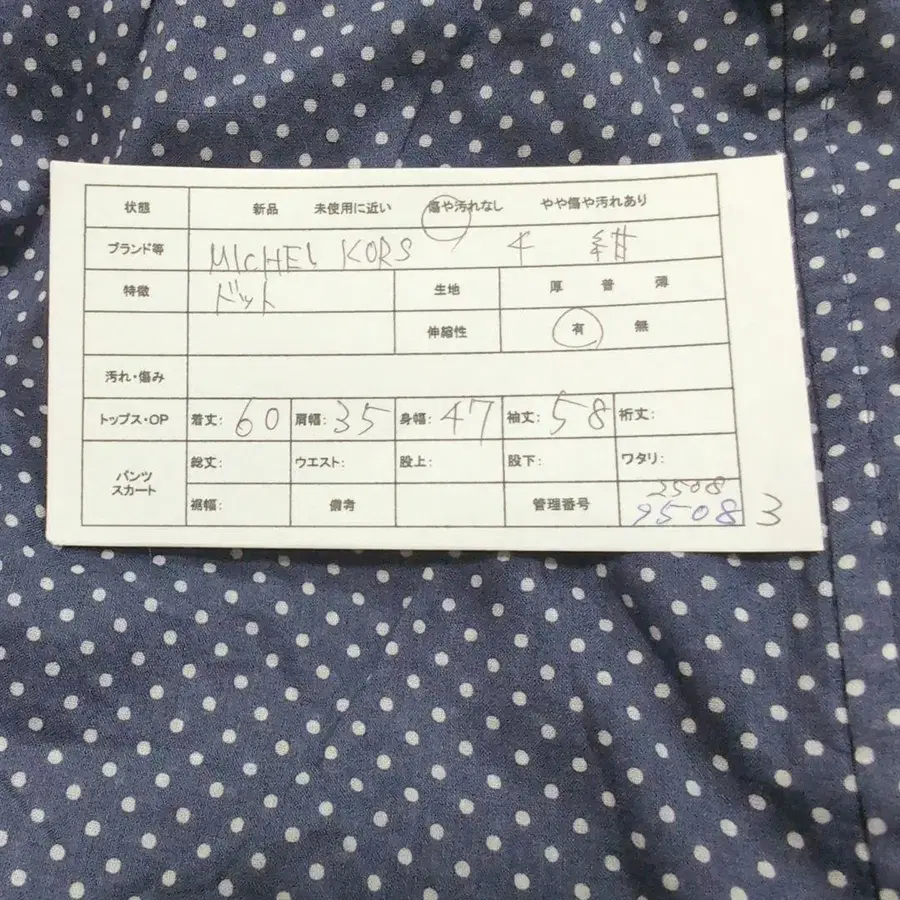 状態 新品 未使用に近い 傷や汚れなし やや傷や汚れあり
ブランド等 MICHEL KORS 4 紺
特徴 ドット 生地 厚 普 薄
伸縮性 有 無
汚れ・傷み
トップス・OP 着丈: 60 肩幅: 35 身幅: 47 袖丈: 58 裄丈:
パンツ スカート 総丈: ウエスト: 股上: 股下: ワタリ:
裾幅: 備考 管理番号 2508
9508 3